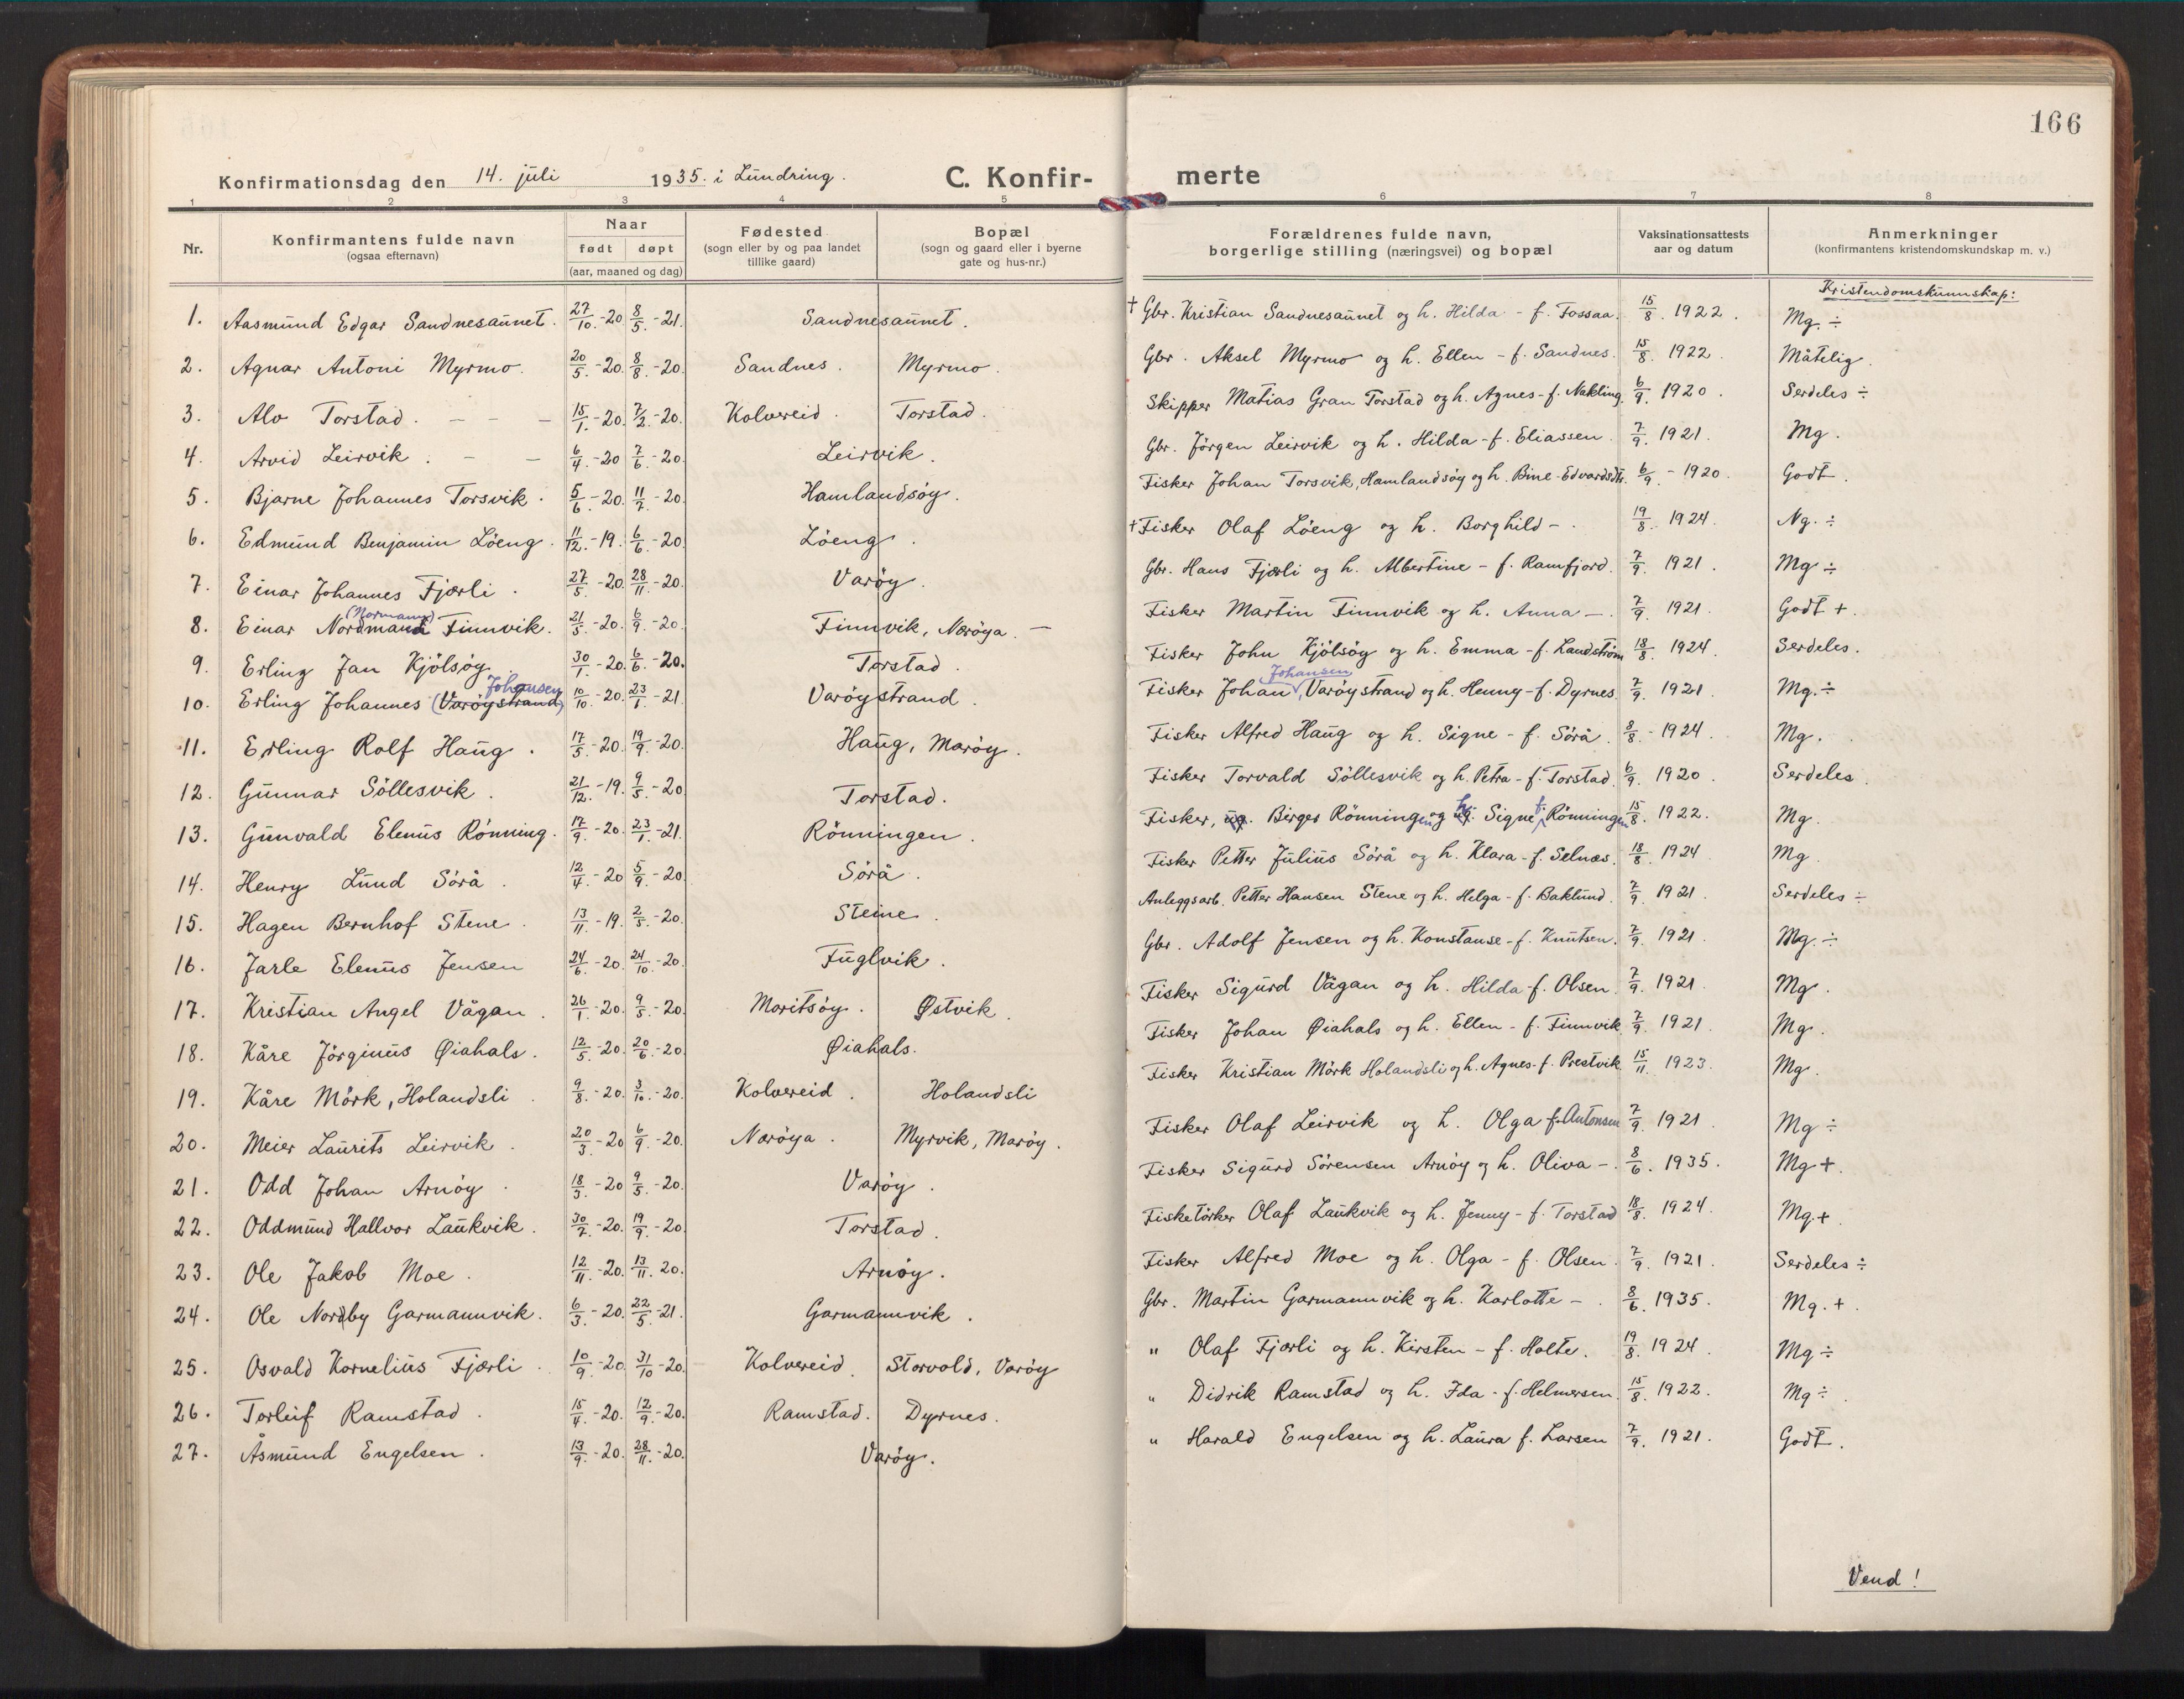 166
Konfirmationsdag den 14. juli 1935. i Lundring. C. Konfir- merte
1 2 3 4 5 6 7 8
Nr. Konfirmantens fulde navn (ogsaa efternavn) Naar født døpt (aar, maaned og dag) Fødested (sogn eller by og paa landet tillike gaard) Bopæl (sogn og gaard eller i byerne gate og hus-nr.) Forældrenes fulde navn, borgerlige stilling (næringsvei) og bopæl Vaksinationsattests aar og datum Anmerkninger (konfirmantens kristendomskundskap m. v.)
Kristendomskunnskap:
1. Aasmund Edgar Sandnesaunet. 27/10.-20 8/5.-21. Sandnesaunet. † Gbr. Kristian Sandnesaunet og h. Hilda - f. Fossaa. 15/8. 1922. Mg. ÷
2. Agnar Antoni Myrmo. 20/5.-20. 8/8.-20. Sandnes. Myrmo. Gbr. Aksel Myrmo og h. Ellen - f. Sandnes. 15/8. 1922. Måtelig.
3. Alv Torstad. - - - 15/1.-20. 7/2.-20. Kolvereid. Torstad. Skipper Matias Gran Torstad og h. Agnes - f. Nakling. 6/9. 1920. Serdeles ÷
4. Arvid Leirvik. - - 6/4.-20 7/6.-20. Leirvik. Gbr. Jörgen Leirvik og h. Hilda - f. Eliassen. 7/9. 1921. Mg.
5. Bjarne Johannes Torsvik. 5/6.-20. 11/7.-20. Hamlandsöy. Fisker Johan Torsvik, Hamlandsöy og h. Bine Edvardsdtr. 6/9. - 1920. Godt.
6. Edmund Benjamin Löeng. 11/12.-19. 6/6.-20. Löeng. † Fisker Olaf Löeng og h. Borghild -. 19/8. 1924. Ng. ÷
7. Einar Johannes Fjærli. 27/5.-20. 28/11.-20. Varöy. Gbr. Hans Fjærli og h. Albertine - f. Ramfjord. 7/9. 1921. Mg ÷
8. Einar Nordmand (Normann) Finnvik. 21/5.-20. 6/9.-20. Finnvik, Næröya. - Fisker Martin Finnvik og h. Anna -. 7/9. 1921. Godt +.
9. Erling Jan Kjölsöy. 30/1.-20. 6/6.-20. Torstad. Fisker John Kjölsöy og h. Emma - f. Landström 18/8. 1924. Serdeles.
10. Erling Johannes (Varöystrand) Johansen 10/10.-20. 23/1.-21. Varöystrand. Fisker Johan Johansen, Varöystrand og h. Henny - f. Dyrnes. 7/9. 1921. Mg. ÷
11. Erling Rolf Haug. 17/5.-20. 19/9.-20. Haug, Maröy. Fisker Alfred Haug og h. Signe - f. Sörå. 8/8. - 1924. Mg.
12. Gunnar Söllesvik. 21/12.-19. 9/5.-20 Torstad. Fisker Torvald Söllesvik og h. Petra - f. Torstad. 6/9. 1920. Serdeles.
13. Gunvald Elenus Rönning. 17/9.-20. 23/1.-21. Rönningen. Fisker, ug. Birger Rönningen og h. Signe f. Rönningen 15/8. 1922. Mg.
14. Henry Lund Sörå. 12/4.-20 5/9.-20. Sörå. Fisker Petter Julius Sörå og h. Klara - f. Selnæs. 18/8. 1924 Mg.
15. Hagen Bernhof Stene. 13/11.-19. 2/5.-20. Steine. Anleggsarb. Petter Hansen Stene og h. Helga - f. Baklund. 7/9. 1921. Serdeles ÷
16. Jarle Elenus Jensen 24/6.-20. 24/10.-20. Fuglvik. Gbr. Adolf Jensen og h. Konstanse - f. Knutsen. 7/9. 1921. Mg. ÷
17. Kristian Angel Vågan. 26/1.-20. 9/5.-20. Maritsöy. Østvik. Fisker Sigurd Vågan og h. Hilda - f. Olsen. 7/9. 1921. Mg.
18. Kåre Jörginus Øiahals. 12/5.-20. 20/6.-20. Øiahals. Fisker Johan Øiahals og h. Ellen - f. Finnvik. 7/9. 1921. Mg.
19. Kåre Mörk, Holandsli. 9/8.-20. 3/10.-20. Kolvereid. Holandsli Fisker Kristian Mörk Holandsli og h. Agnes - f. Prestvik 15/11. 1923. Mg.
20. Meier Laurits Leirvik. 20/3.-20 6/9.-20. Næröya. Myrvik, Maröy. Fisker Olaf Leirvik og h. Olga f. Antonsen 7/9. 1921. Mg ÷
21. Odd Johan Arnöy. 18/3.-20 9/5.-20. Varöy. Fisker Sigurd Sörensen Arnöy og h. Oliva -. 8/6. 1935. Mg +.
22. Oddmund Hallvor Laukvik. 30/7.-20. 19/9.-20. Torstad. Fisketörker Olaf Laukvik og h. Jenny - f. Torstad 18/8. 1924. Mg. +.
23. Ole Jakob Moe. 12/11.-20. 13/11. 20. Arnöy. Fisker Alfred Moe og h. Olga - f. Olsen. 7/9. 1921. Serdeles ÷
24. Ole Nordby Garmannvik. 6/3.-20. 22/5.-21. Garmannvik. Gbr. Martin Garmannvik og h. Karlotte -. 8/6. 1935. Mg. +.
25. Osvald Kornelius Fjærli. 10/9.-20. 31/10-20. Kolvereid. Storvold, Varöy " Olaf Fjærli og h. Kirsten - f. Holte. 19/8. 1924. Mg ÷
26. Torleif Ramstad. 15/4.-20. 12/9.-20. Ramstad. Dyrnes. " Didrik Ramstad og h. Ida - f. Helmersen. 15/8. 1922. Mg ÷.
27. Åsmund Engelsen. 13/9.-20. 28/11.-20. Varöy. " Harald Engelsen og h. Laura f. Larsen 7/9. 1921. Godt.
Vend!